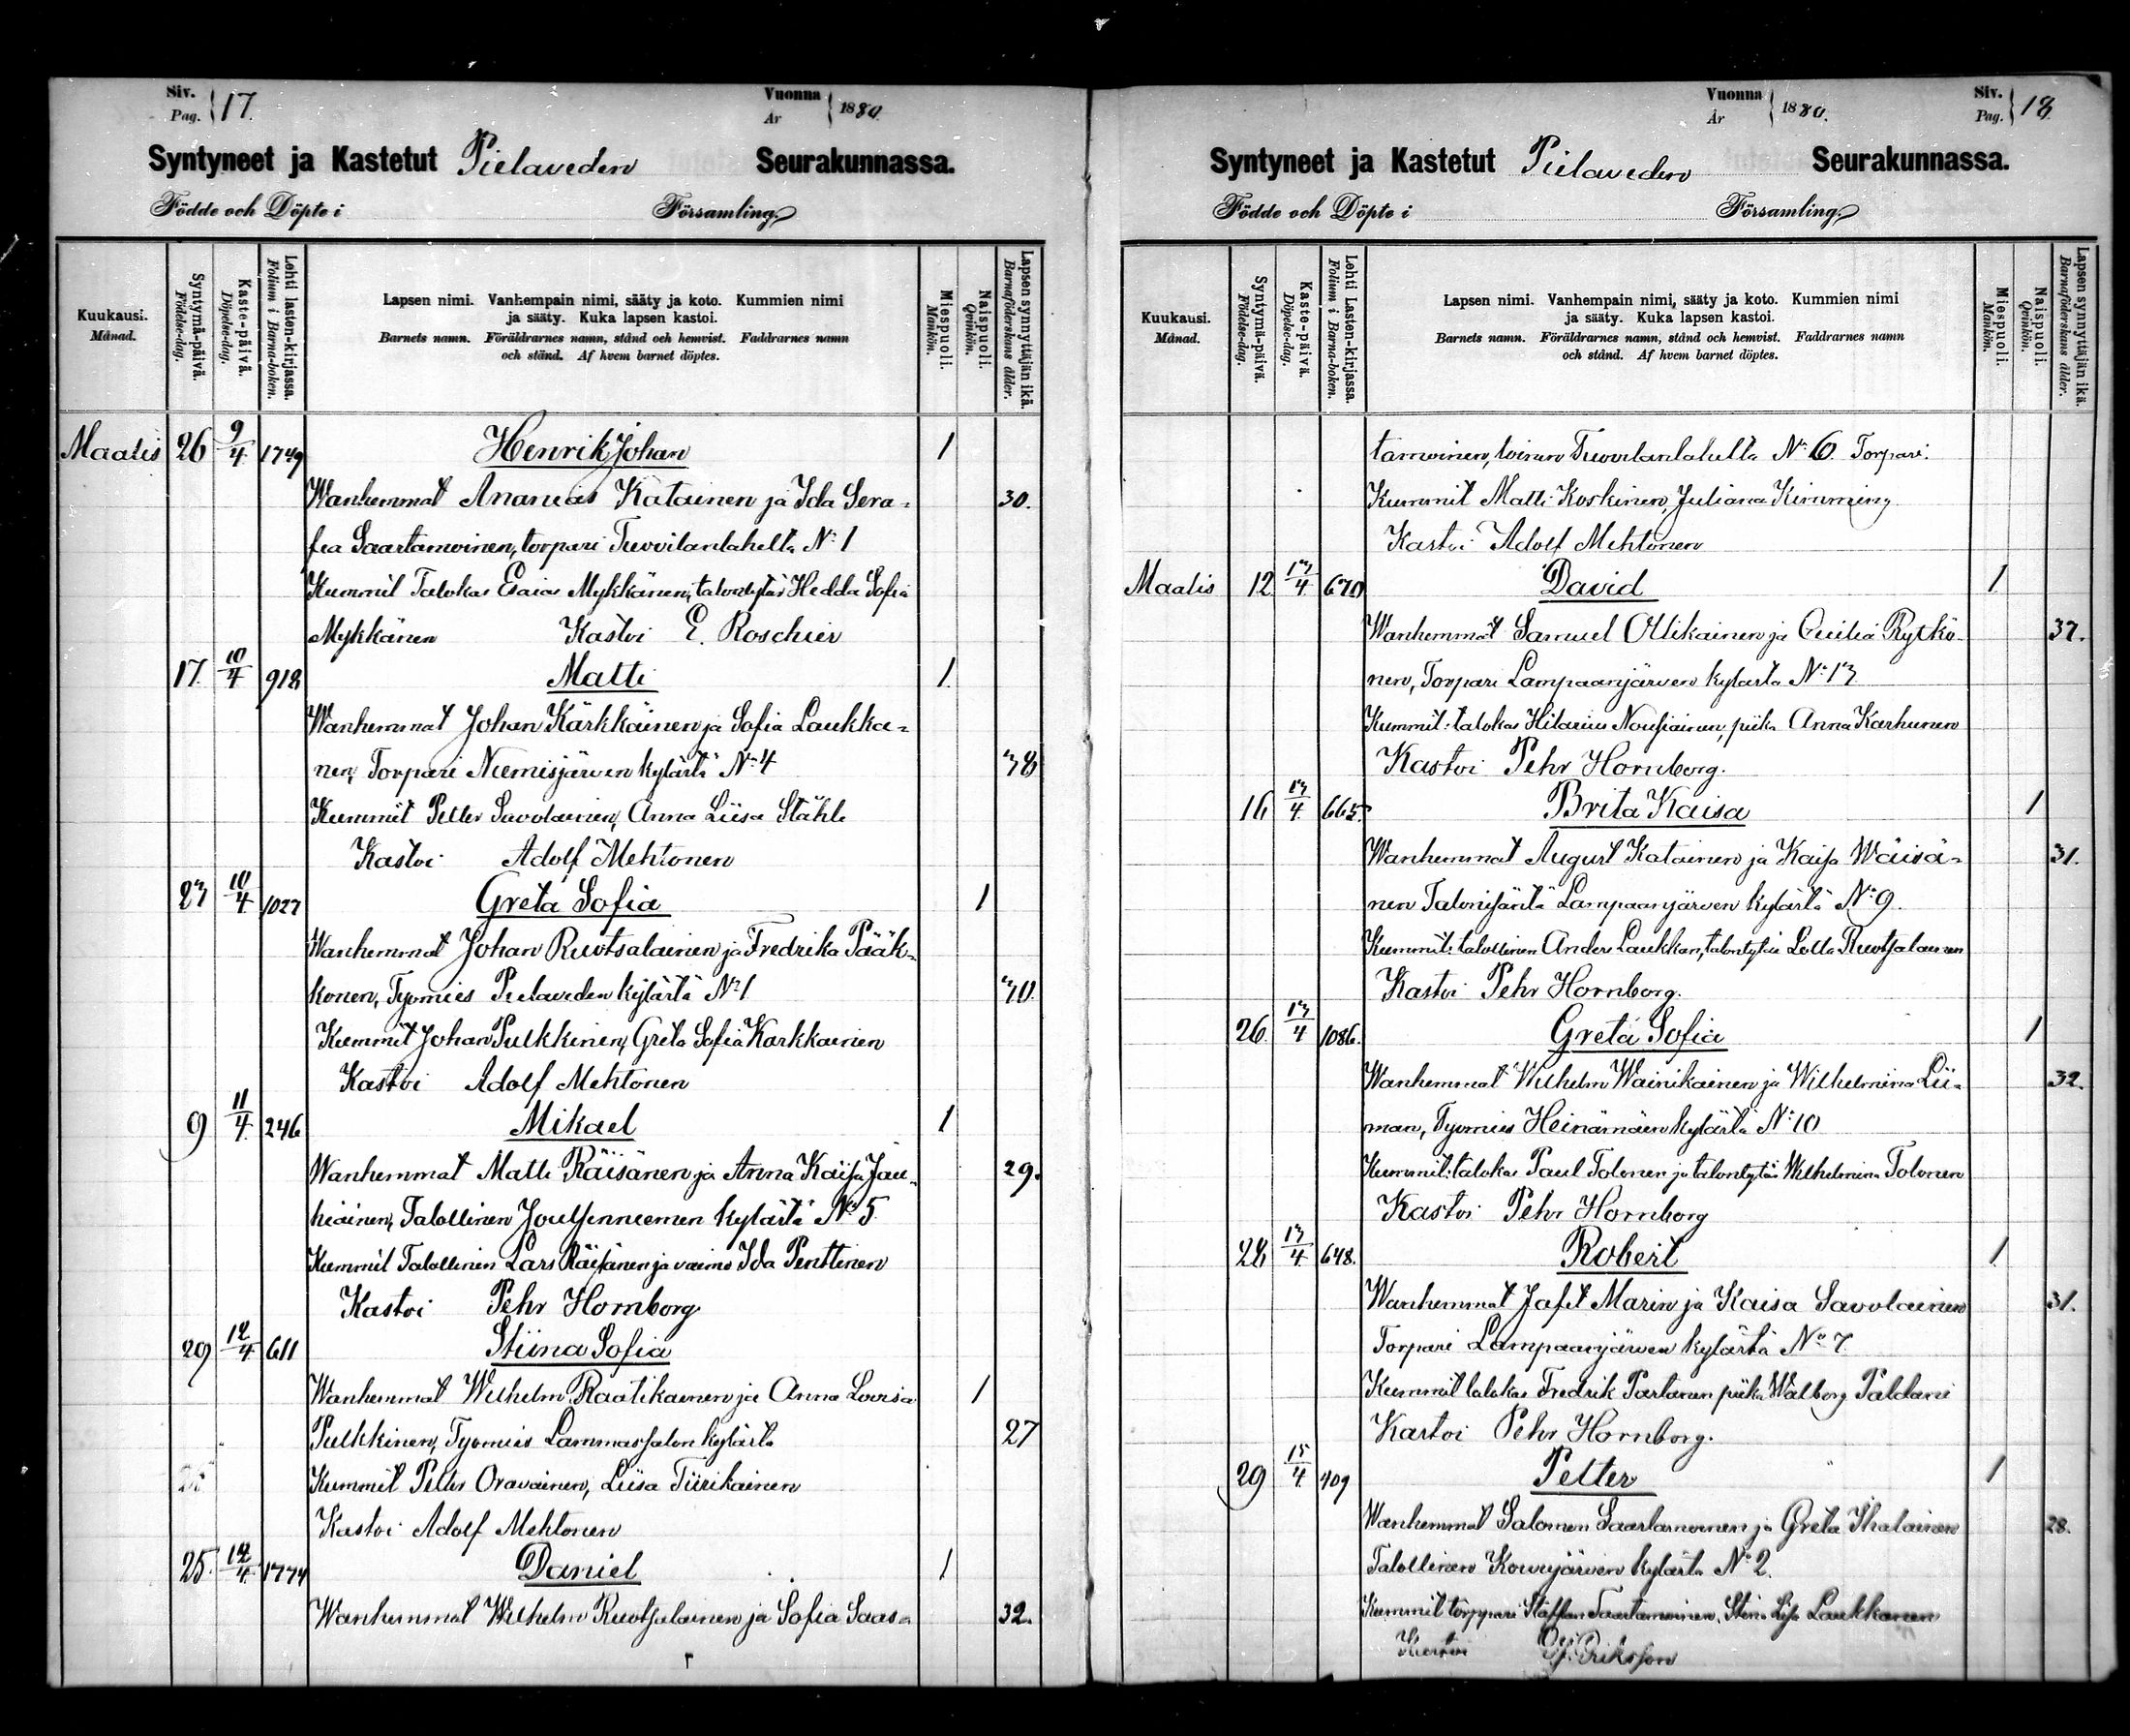 Siv. Pag. 17. Vuonna År 1880.
Syntyneet ja Kastetut Pielaveden Seurakunnassa.
Födde och Döpte i Församling.
Kuukausi. Månad.
Syntymä-päivä. Födelse-dag.
Kaste-päivä. Döpelse-dag.
Lehti lasten-kirjassa. Folium i Barna-boken.
Lapsen nimi. Vanhempain nimi, sääty ja koto. Kummien nimi
ja sääty. Kuka lapsen kastoi.
Barnets namn. Föräldrarnes namn, stånd och hemvist. Faddrarnes namn
och stånd. Af hvem barnet döptes.
Miespuoli. Mankön.
Naispuoli. Qvinkön.
Lapsen synnyttäjän ikä. Barnaföderskans ålder.
Maalis 26 9/4 1749 Henrik Johan 1
Wanhemmat Ananias Katainen ja Ida Sera- 30.
fia Saastamoinen, torpari Tuovilanlahelta No 1
Kummit Talokas Esaias Mykkänen, talontytär Hedda Sofia
Mykkänen Kastoi E. Roschier
17. 10/4 918 Matti 1.
Wanhemmat Johan Kärkkäinen ja Sofia Laukka-
nen, Torpari Niemisjärven kylästä No 4 38
Kummit Petter Savolainen, Anna Liisa Ståhle
Kastoi Adolf Mehtonen
23 10/4 1027 Greta Sofia 1
Wanhemmat Johan Ruotsalainen ja Fredrika Pääk-
konen, Työmies Pielaveden kylästä No 1 30.
Kummit Johan Pulkkinen, Greta Sofia Karkkainen
Kastoi Adolf Mehtonen
9 11/4 246 Mikael 1
Wanhemmat Matti Räisänen ja Anna Kaisa Jau- 29.
hiainen, Talollinen Joutsenniemen kylästä No 5
Kummit Talollinen Lars Räisänen ja vaimo Ida Penttinen
Kastoi Pehr Hornborg
29 12/4 611 Stiina Sofia
Wanhemmat Wilhelm Raatikainen ja Anna Lovisa 1
Pulkkinen, Työmies Lammassalon kylästä 27
Kummit Petter Oravainen, Liisa Tiirikainen
Kastoi Adolf Mehtonen
25. 12/4 1774 Daniel 1
Wanhemmat Wilhelm Ruotsalainen ja Sofia Saas- 32.
Vuonna År 1880. Siv. Pag. 18.
Syntyneet ja Kastetut Pielaveden Seurakunnassa.
Födde och Döpte i Församling.
Kuukausi. Månad.
Syntymä-päivä. Födelse-dag.
Kaste-päivä. Döpelse-dag.
Lehti Lasten-kirjassa. Folium i Barna-boken.
Lapsen nimi. Vanhempain nimi, sääty ja koto. Kummien nimi
ja sääty. Kuka lapsen kastoi.
Barnets namn. Föräldrarnes namn, stånd och hemvist. Faddrarnes namn
och stånd. Af hvem barnet döptes.
Miespuoli. Mankön.
Naispuoli. Qvinkön.
Lapsen synnyttäjän ikä. Barnaföderskans ålder.
tamoinen, Tuovilanlahelta No 6. Torpari.
Kummit Matti Koskinen, Juliana Kimmin
Kastoi Adolf Mehtonen
Maalis 12 13/4 670 David 1
Wanhemmat Samuel Ollikainen ja Cecilia Rytkö- 37.
nen, Torpari Lampaanjärven kylästä No 13
Kummit: talokas Hilarius Nousiainen, piika Anna Karhunen
Kastoi Pehr Hornborg.
16 13/4 665 Brita Kaisa 1
Wanhemmat August Katainen ja Kaisa Wäisä- 31.
nen Talonisäntä Lampaanjärven kylästä No 9.
Kummit: talollinen Anders Laukkan, talontytär Lotta Ruotsalainen
Kastoi Pehr Hornborg.
26. 13/4 1086. Greta Sofia 1
Wanhemmat Wilhelm Wainikainen ja Wilhelmina Lii- 32.
man, Työmies Heinämäen kylästä No 10
Kummit: talokas Paul Tolonen ja talontytär Wilhelmina Tolonen
Kastoi Pehr Hornborg
28 13/4 648. Robert 1
Wanhemmat Jafet Marin ja Kaisa Savolainen 31.
Torpari Lampaanjärven kylästä No 7.
Kummit talokas Fredrik Partanen piika Walborg Paldani
Kastoi Pehr Hornborg.
29 15/4 409 Petter 1
Wanhemmat Salomon Saastamoinen ja Greta Ihalainen 28.
Talollinen Kouvjärven kylästä No 2.
Kummit torppari Staffan Saastamoinen, Stina Lisa Laukkanen
Kastoi Eriksson